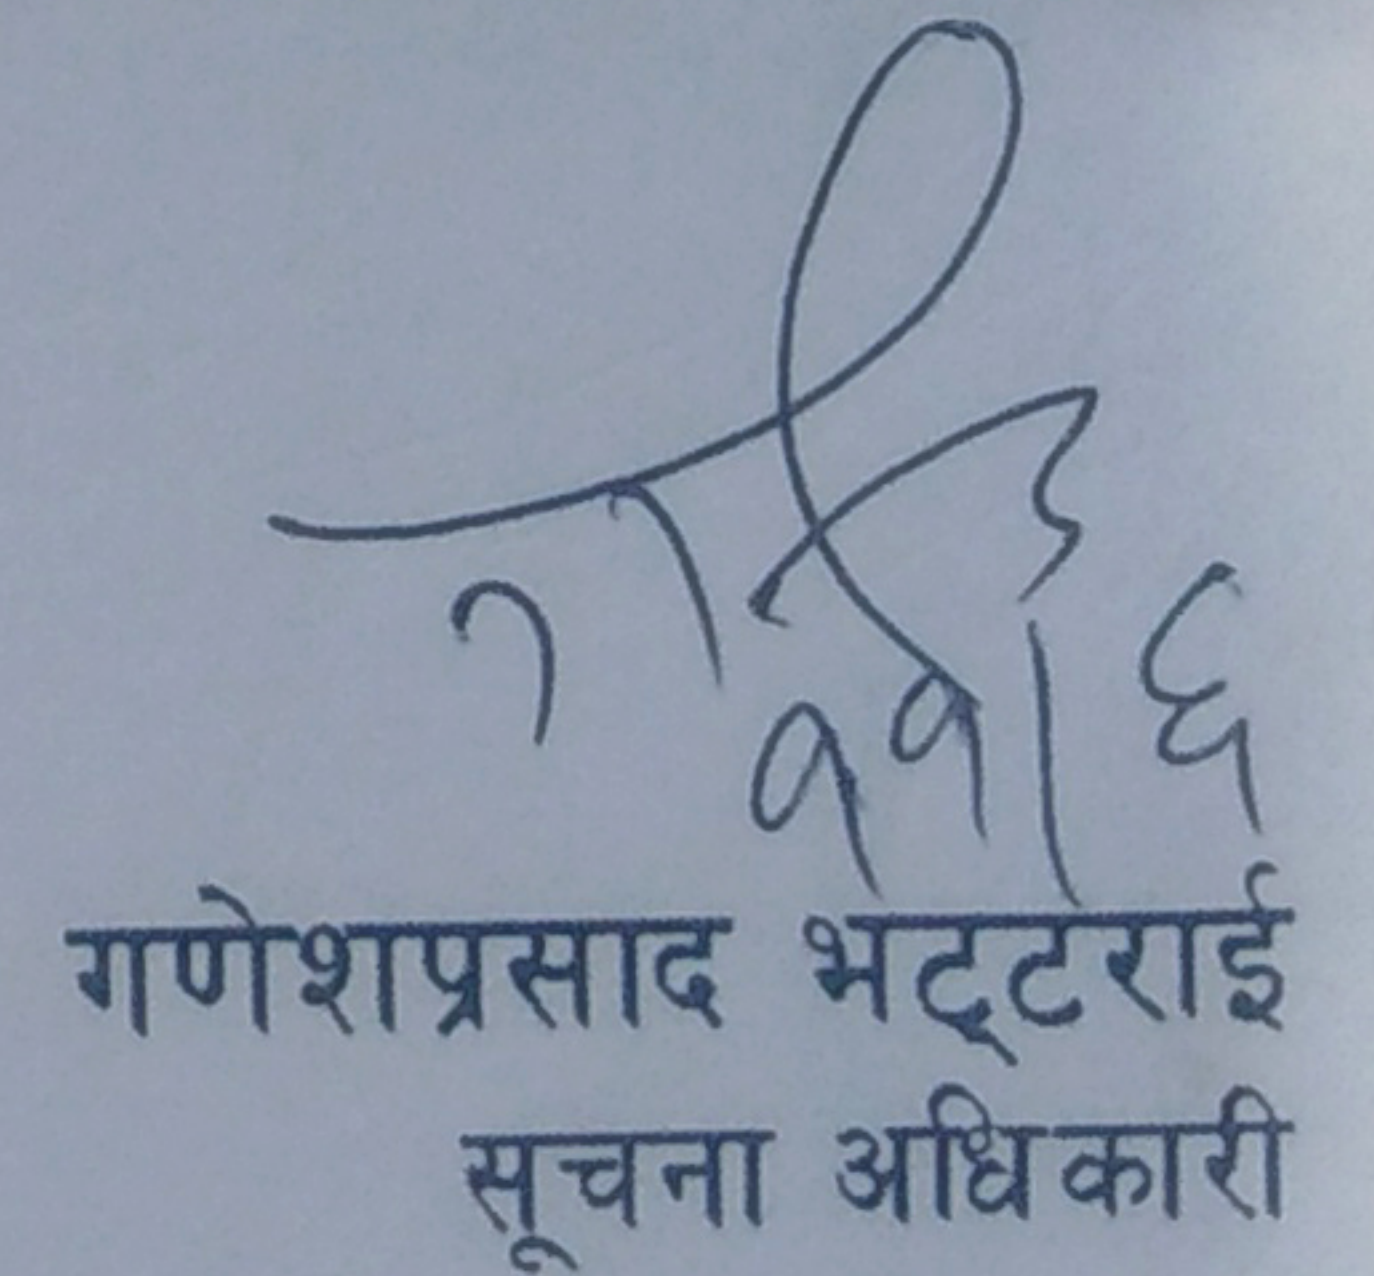 ११/६
गणेशप्रसाद भट्टराई
सूचना अधिकारी